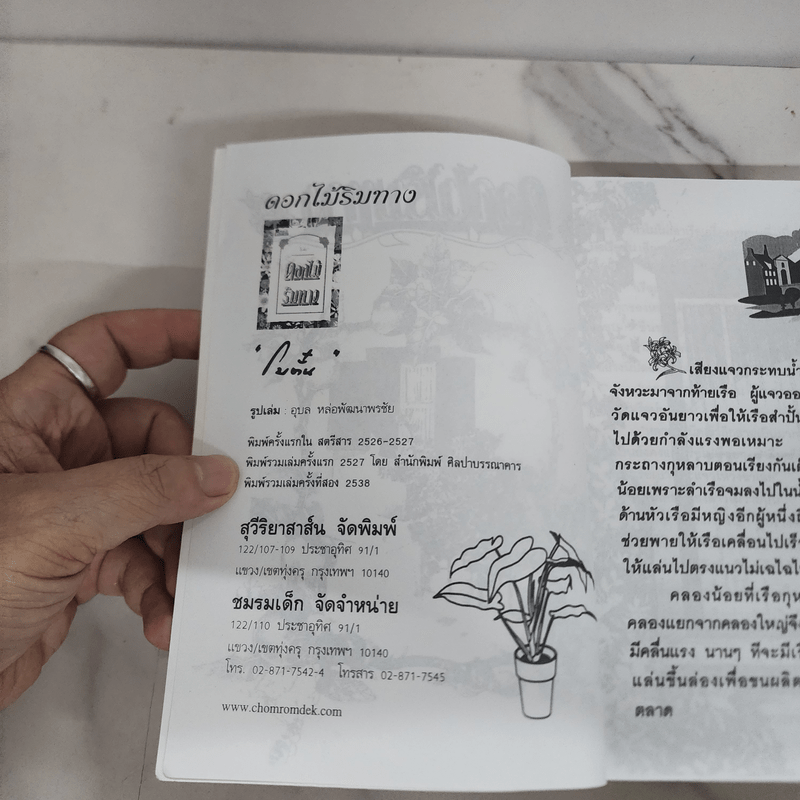 ดอกไม้ริมทาง
ดอกไม้
ริมทาง
"โบตั๋น"
รูปเล่ม : อุบล หล่อพัฒนาพรชัย
พิมพ์ครั้งแรกใน สตรีสาร 2526-2527
พิมพ์รวมเล่มครั้งแรก 2527 โดย สำนักพิมพ์ ศิลปาบรรณาคาร
พิมพ์รวมเล่มครั้งที่สอง 2538
สุวีริยาสาส์น จัดพิมพ์
122/107-109 ประชาอุทิศ 91/1
แขวง/เขตทุ่งครุ กรุงเทพฯ 10140
ชมรมเด็ก จัดจำหน่าย
122/110 ประชาอุทิศ 91/1
แขวง/เขตทุ่งครุ กรุงเทพฯ 10140
โทร. 02-871-7542-4 โทรสาร 02-871-7545
www.chomromdek.com
เสียงแจวกระทบน้ำ
จังหวะมาจากท้ายเรือ ผู้แจวออ
วัดแจวอันยาวเพื่อให้เรือสำปั้น
ไปด้วยกำลังแรงพอเหมาะ
กระถางกุหลาบตอนเรียงกันเต็
น้อยเพราะลำเรือจมลงไปในน้ำ
ด้านหัวเรือมีหญิงอีกผู้หนึ่ง
ช่วยพายให้เรือเคลื่อนไปเร็
ให้แล่นไปตรงแนวไม่เฉไฉไ
คลองน้อยที่เรือกุห
คลองแยกจากคลองใหญ่จึ
มีคลื่นแรง นานๆ ทีจะมีเรื
แล่นขึ้นล่องเพื่อขนผลิต
ตลาด